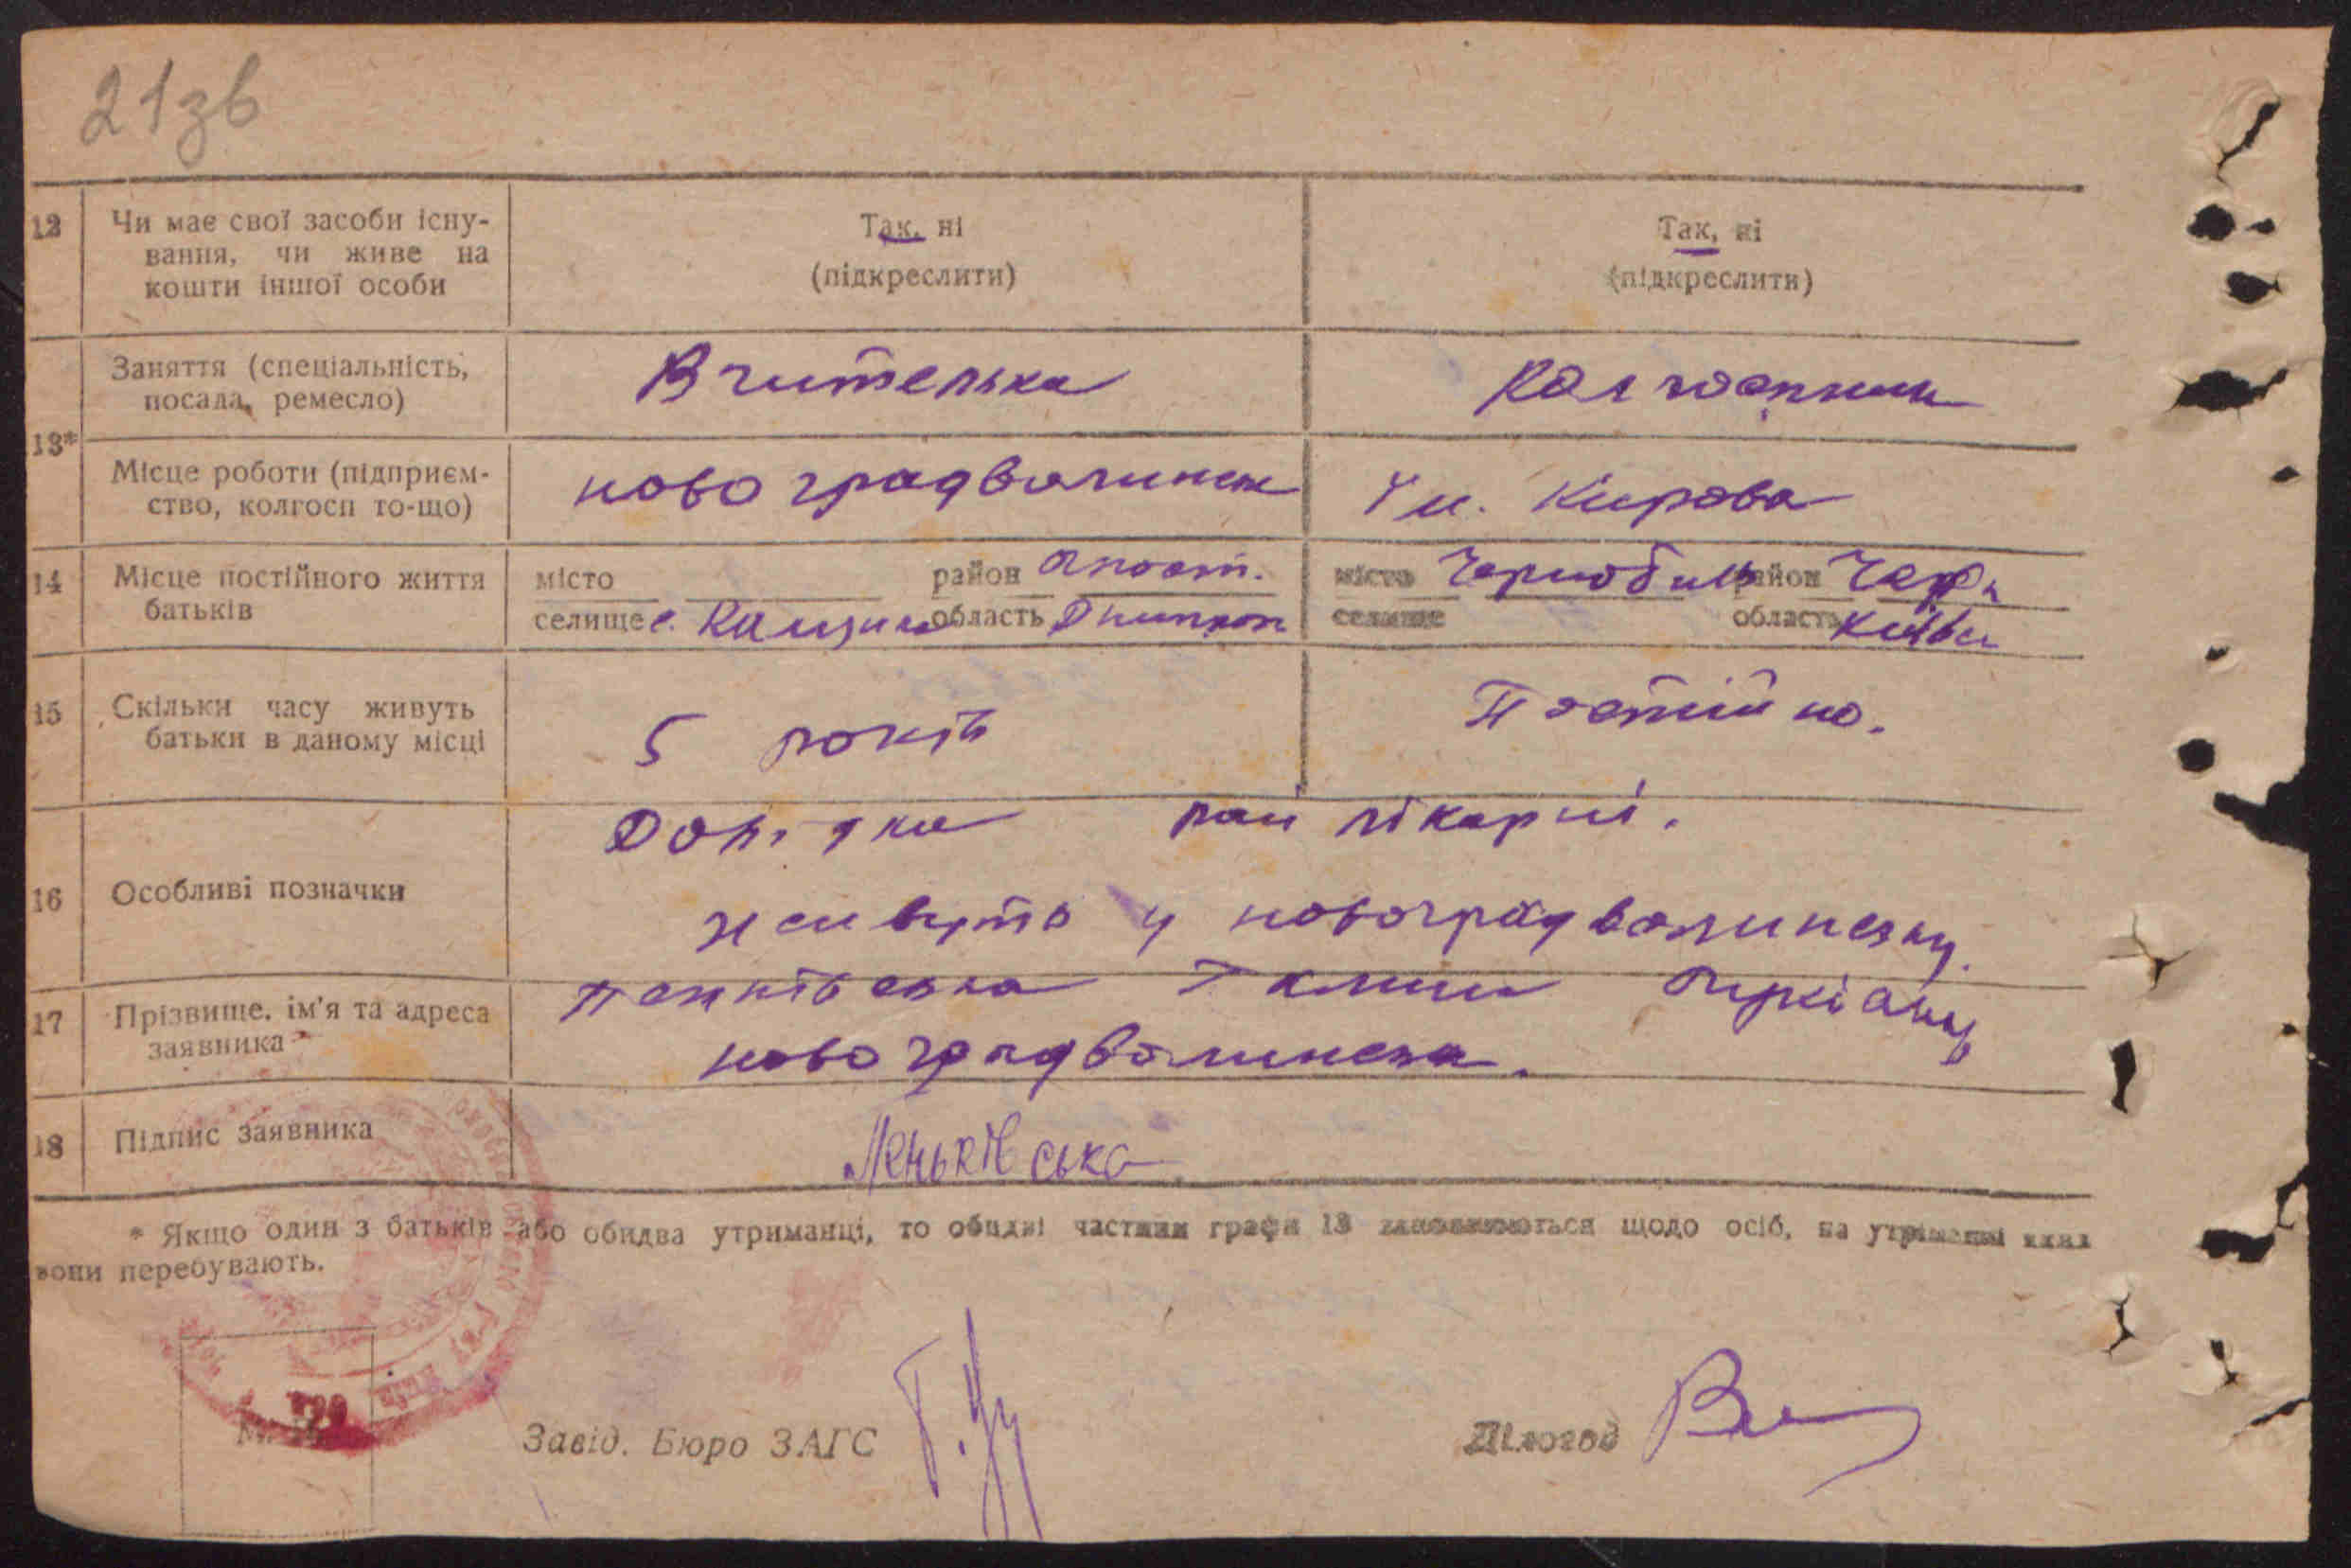 21зв
12 Чи має свої засоби існу-
вання, чи живе на
кошти іншої особи
Так, ні
(підкреслити)
Так, ні
(підкреслити)
13*
Заняття (спеціальність,
посада, ремесло)
Вчителька
Колгоспник
Місце роботи (підприєм-
ство, колгосп то-що)
новоградволинськ
Ім. Кирова
14 Місце постійного життя
батьків
місто район Апост.
селище с. область Днипроп
місто Чернобиль район Черн
селище область Київськ
15 Скільки часу живуть
батьки в даному місці
5 років
Постійно.
16 Особливі позначки
Довідка рай лікарні.
живуть у новоградволинську.
17 Прізвище, ім'я та адреса
заявника
новоградволинськ.
18 Підпис заявника
Меньківська
* Якщо один з батьків або обидва утриманці, то обидві частини графи 13 заповнюються щодо осіб, на утриманні яких
вони перебувають.
М. П.
Завід. Бюро ЗАГС
Діловод